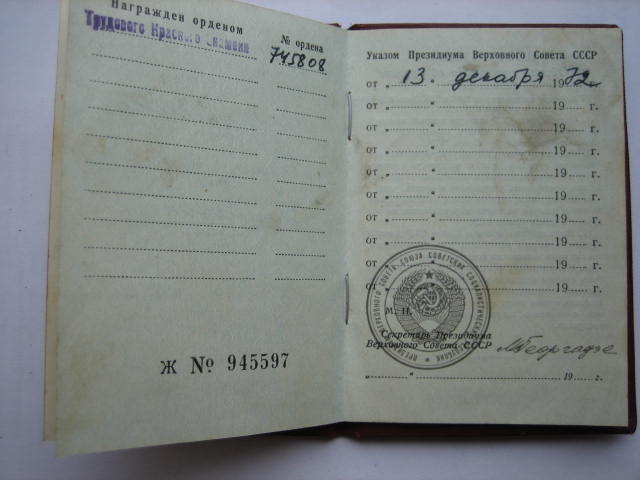 Награжден орденом
Трудового Красного Знамени
№ ордена
745808
Ж № 945597
Указом Президиума Верховного Совета СССР
от „ 13. “ декабря 1972 г.
от „ “ 19 г.
от „ “ 19 г.
от „ “ 19 г.
от „ “ 19 г.
от „ “ 19 г.
от „ “ 19 г.
от „ “ 19 г.
от „ “ 19 г.
от „ “ 19 г.
ПРЕЗИДИУМ ВЕРХОВНОГО СОВЕТА СОЮЗА СОВЕТСКИХ СОЦИАЛИСТИЧЕСКИХ РЕСПУБЛИК
М. П.
Секретарь Президиума
Верховного Совета СССР
М Георгадзе
„ “ 19 г.